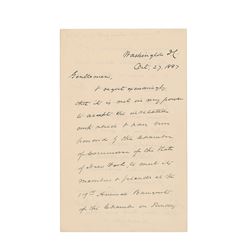 Washington DC
Oct. 27, 1887
Gentlemen,
I regret exceedingly
that it is not in my power
to accept the invitation
and
of the Chamber
of Commerce of the State
of New York, to meet its
members & friends at the
119th Annual Banquet
of the Chamber on